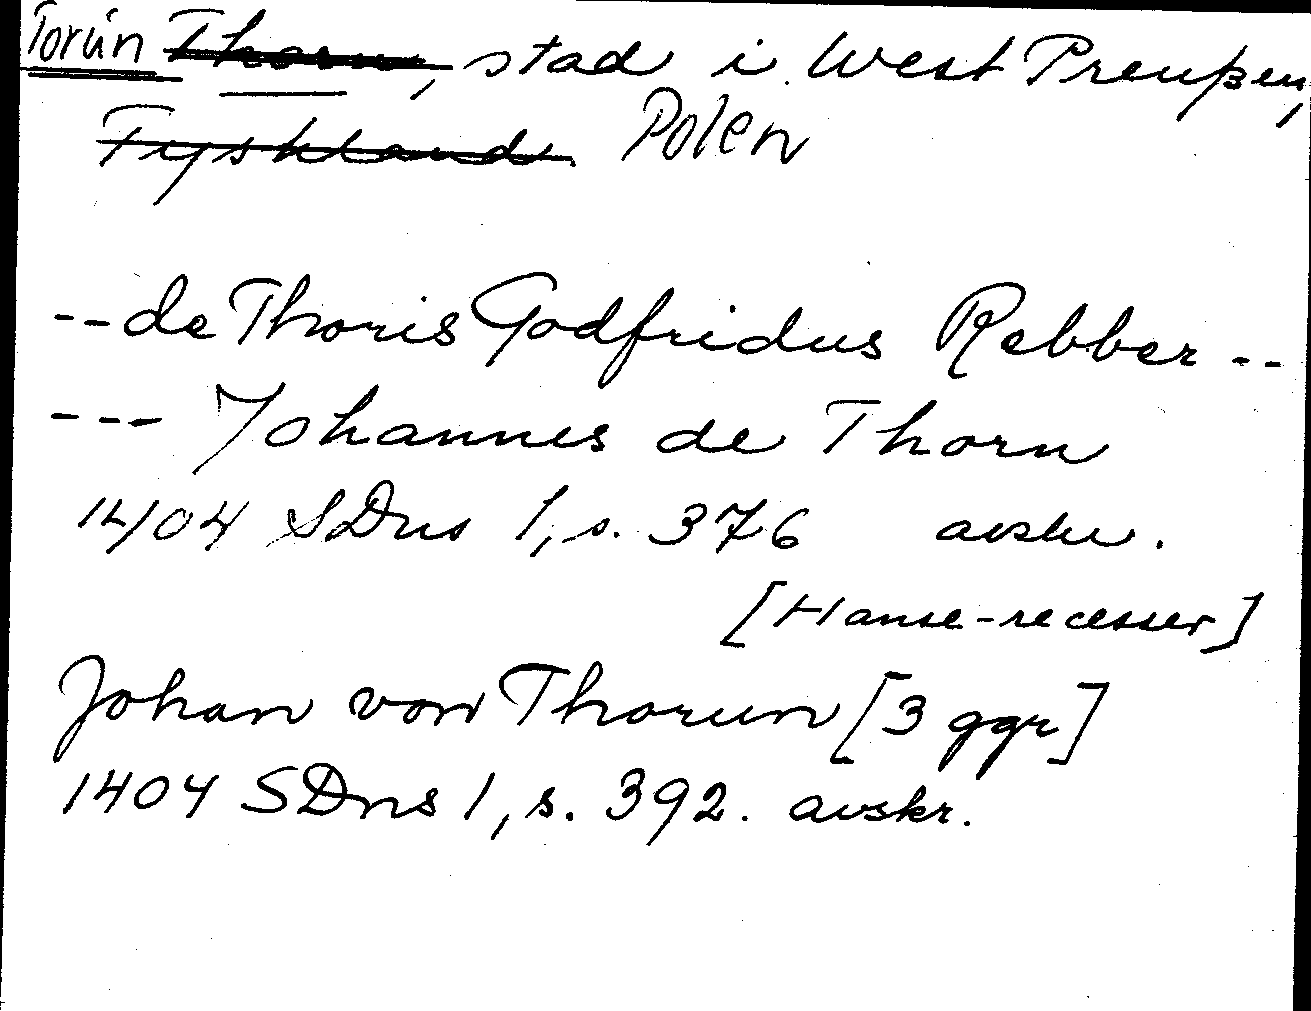 Torún Thorn, stad i West Preußen,
Tyskland. Polen
--de Thoris Godfridus Rebber--
--- Johannes de Thorn
1404 SDns 1, s. 376 avskr.
[Hanse-recesser]
Johan von Thorun [3 ggr]
1404 SDns 1, s. 392. avskr.